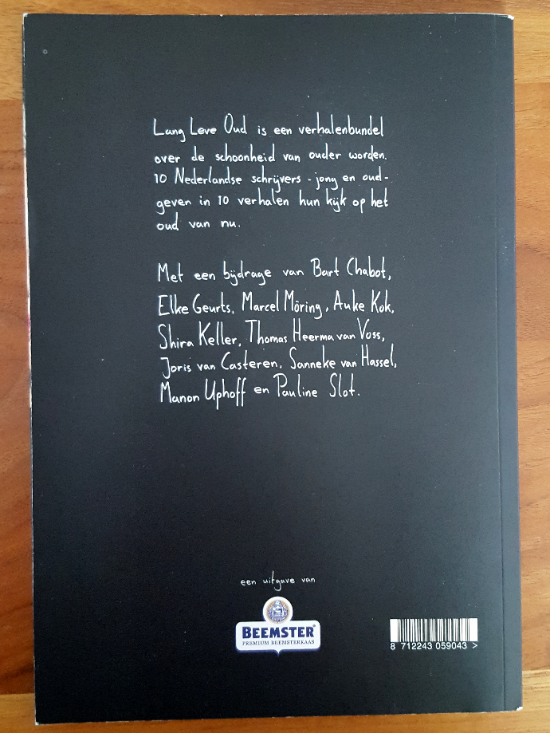 Lang Leve Oud is een verhalenbundel
over de schoonheid van ouder worden.
10 Nederlandse schrijvers - jong en oud -
geven in 10 verhalen hun kijk op het
oud van nu.
Met een bijdrage van Bart Chabot,
Elke Geurts, Marcel Möring, Auke Kok,
Shira Keller, Thomas Heerma van Voss,
Joris van Casteren, Sanneke van Hassel,
Manon Uphoff en Pauline Slot.
een uitgave van
BEEMSTER®
PREMIUM BEEMSTERKAAS
8 712243 059043 >